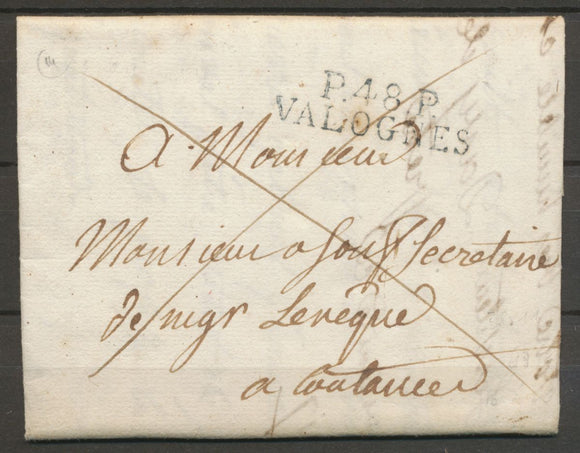 P.48.P.
VALOGNES
A Monsieur
Monsieur Secretaire
de mgr Leveque
a Coutances